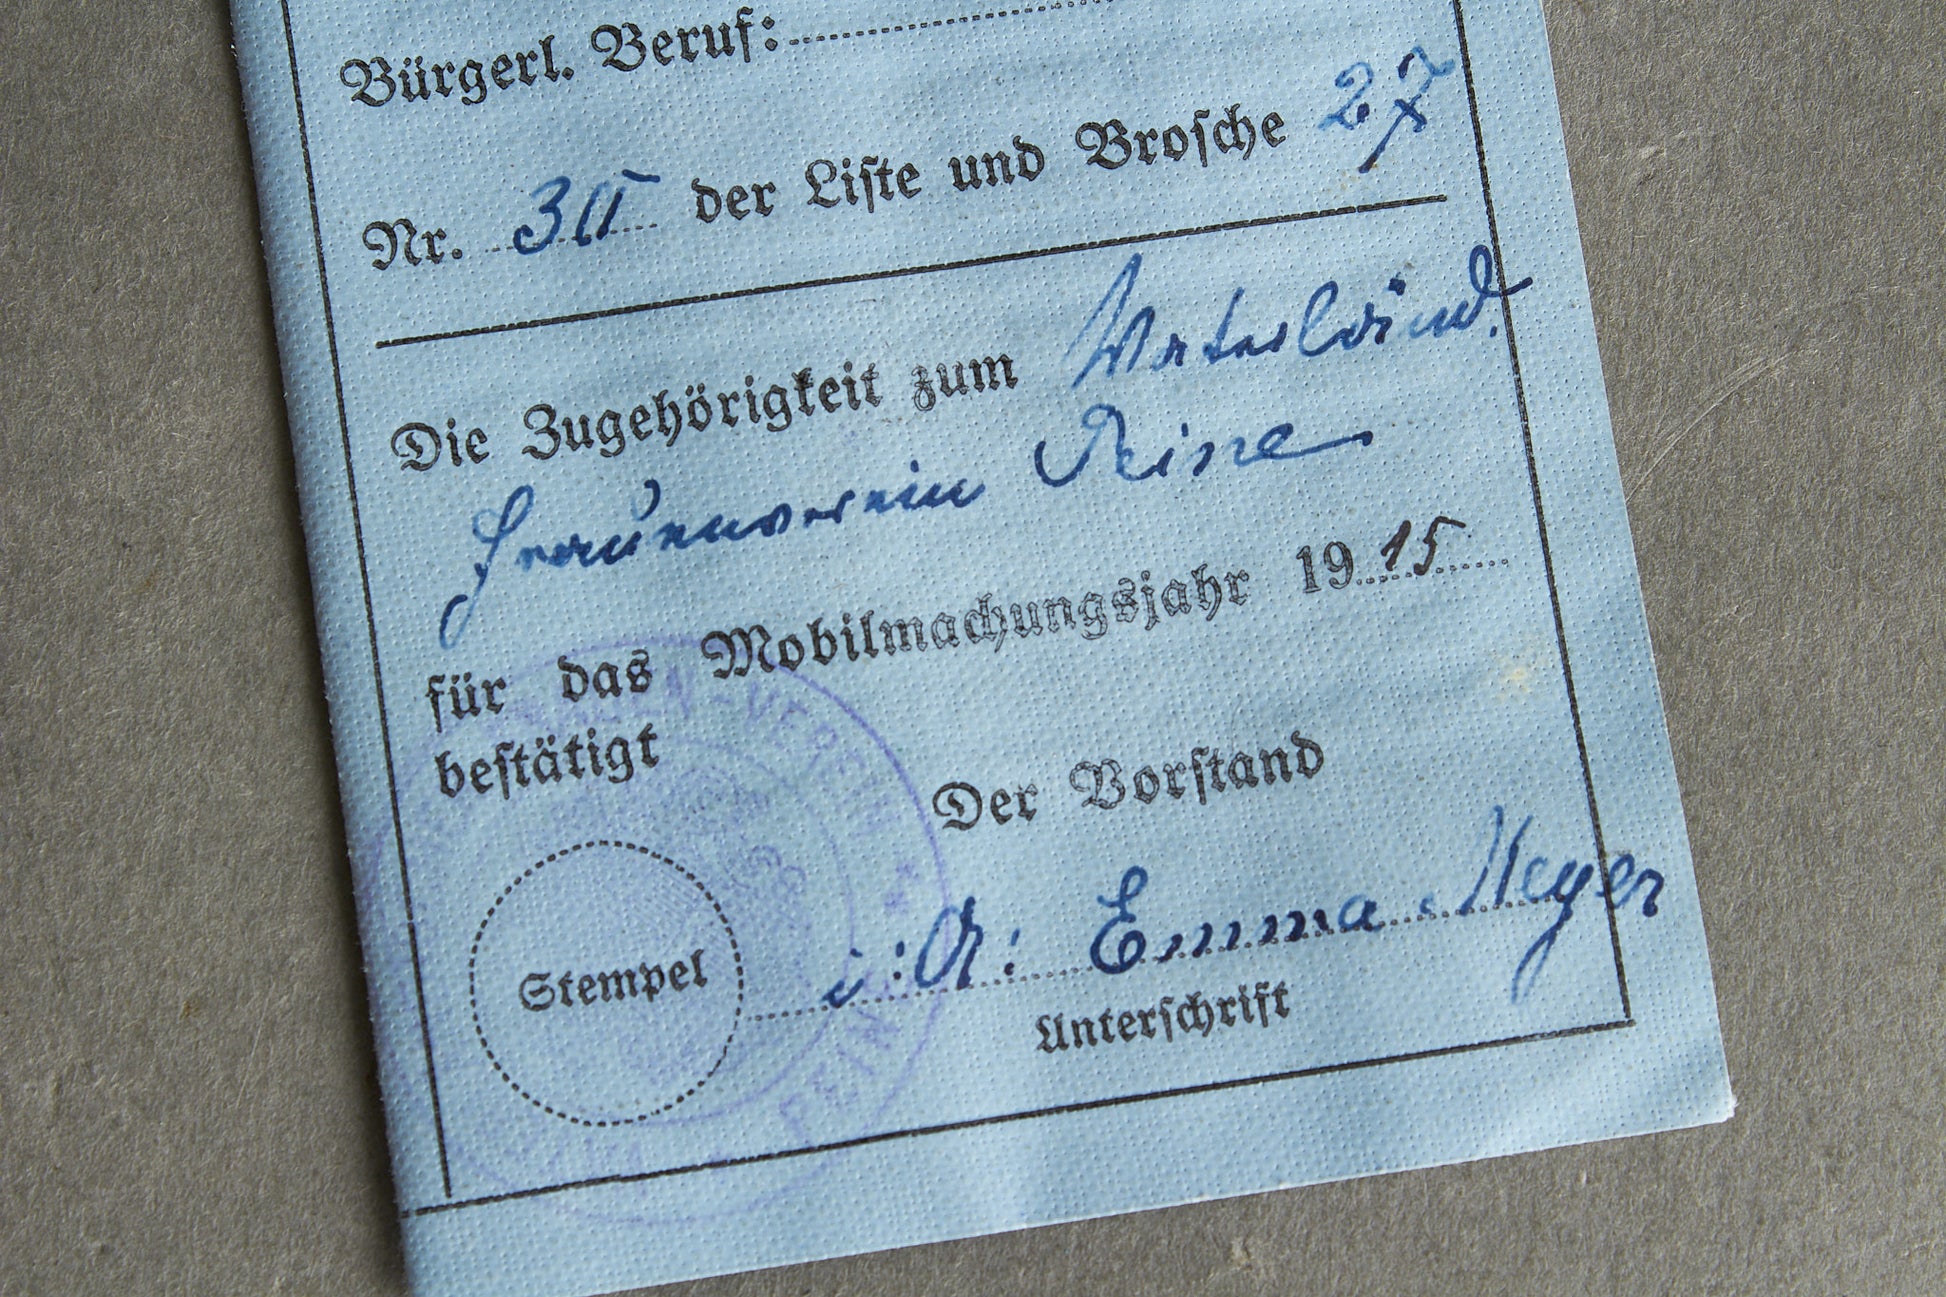 Bürgerl. Beruf:
Nr. 3 der Liste und Brosche 27
Die Zugehörigkeit zum Vaterländ.
Frauenverein Peine
für das Mobilmachungsjahr 1915
bestätigt
Der Vorstand
Stempel
i. A. Emma Meyer
Unterschrift
-VEREIN
PEINE